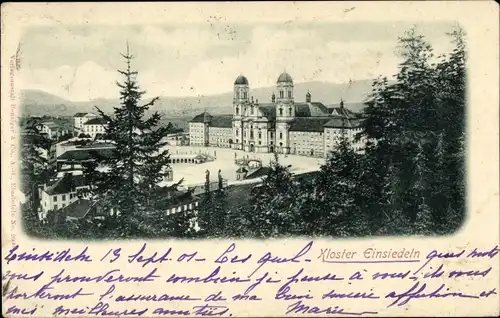 Kloster Einsiedeln
Einsiedeln 13 Sept 01 - Ces quelques
mots vous prouveront combien je pense à vous - ils vous
porteront l'assurance de ma bien sincère affection et
mes meilleures amitiés. Marie